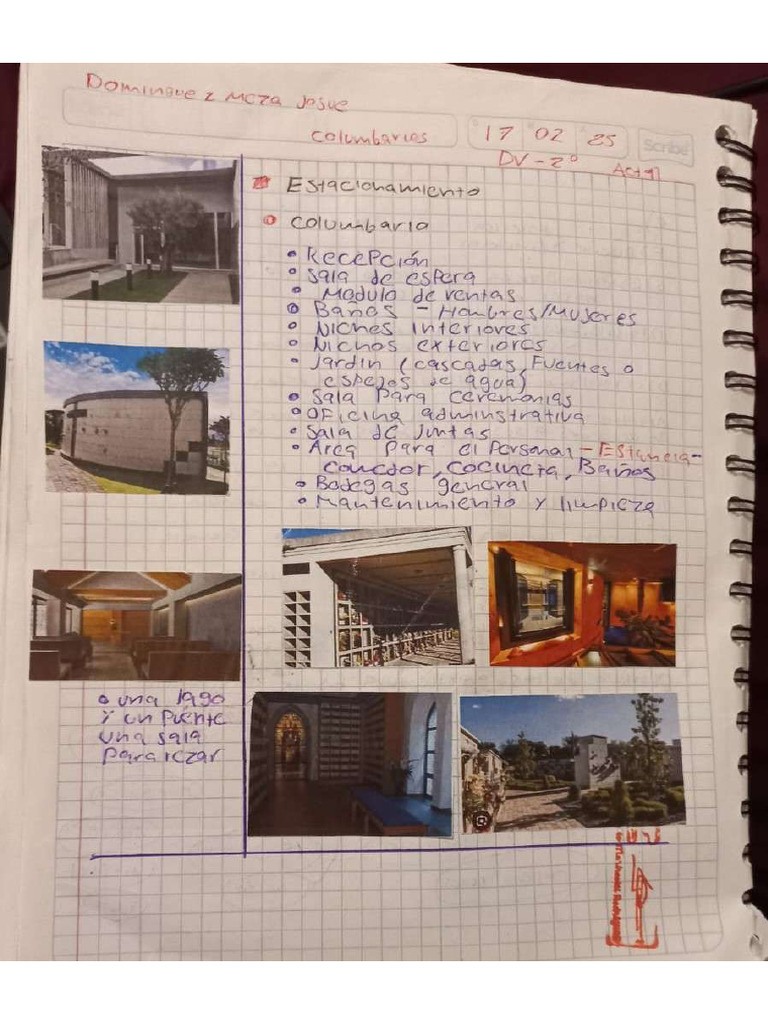 Dominguez Meza Josue
Columbarios
17 02 25
Scribe
DV-2°
Act 1
Estacionamiento
Columbario
Recepción
Sala de espera
Modulo de ventas
Baños - Hombres/Mujeres
Niches interiores
Nichos exteriores
Jardin (cascadas, Fuentes o
espejos de agua)
Sala Para Ceremonias
Oficina adminstrativa
Sala de Juntas
Area Para el Personal - Estancia-
comedor, cocineta, Baños
Bodegas general
Mantenimiento y limpieza
una lago
Y un Puente
una sala
Para rezar